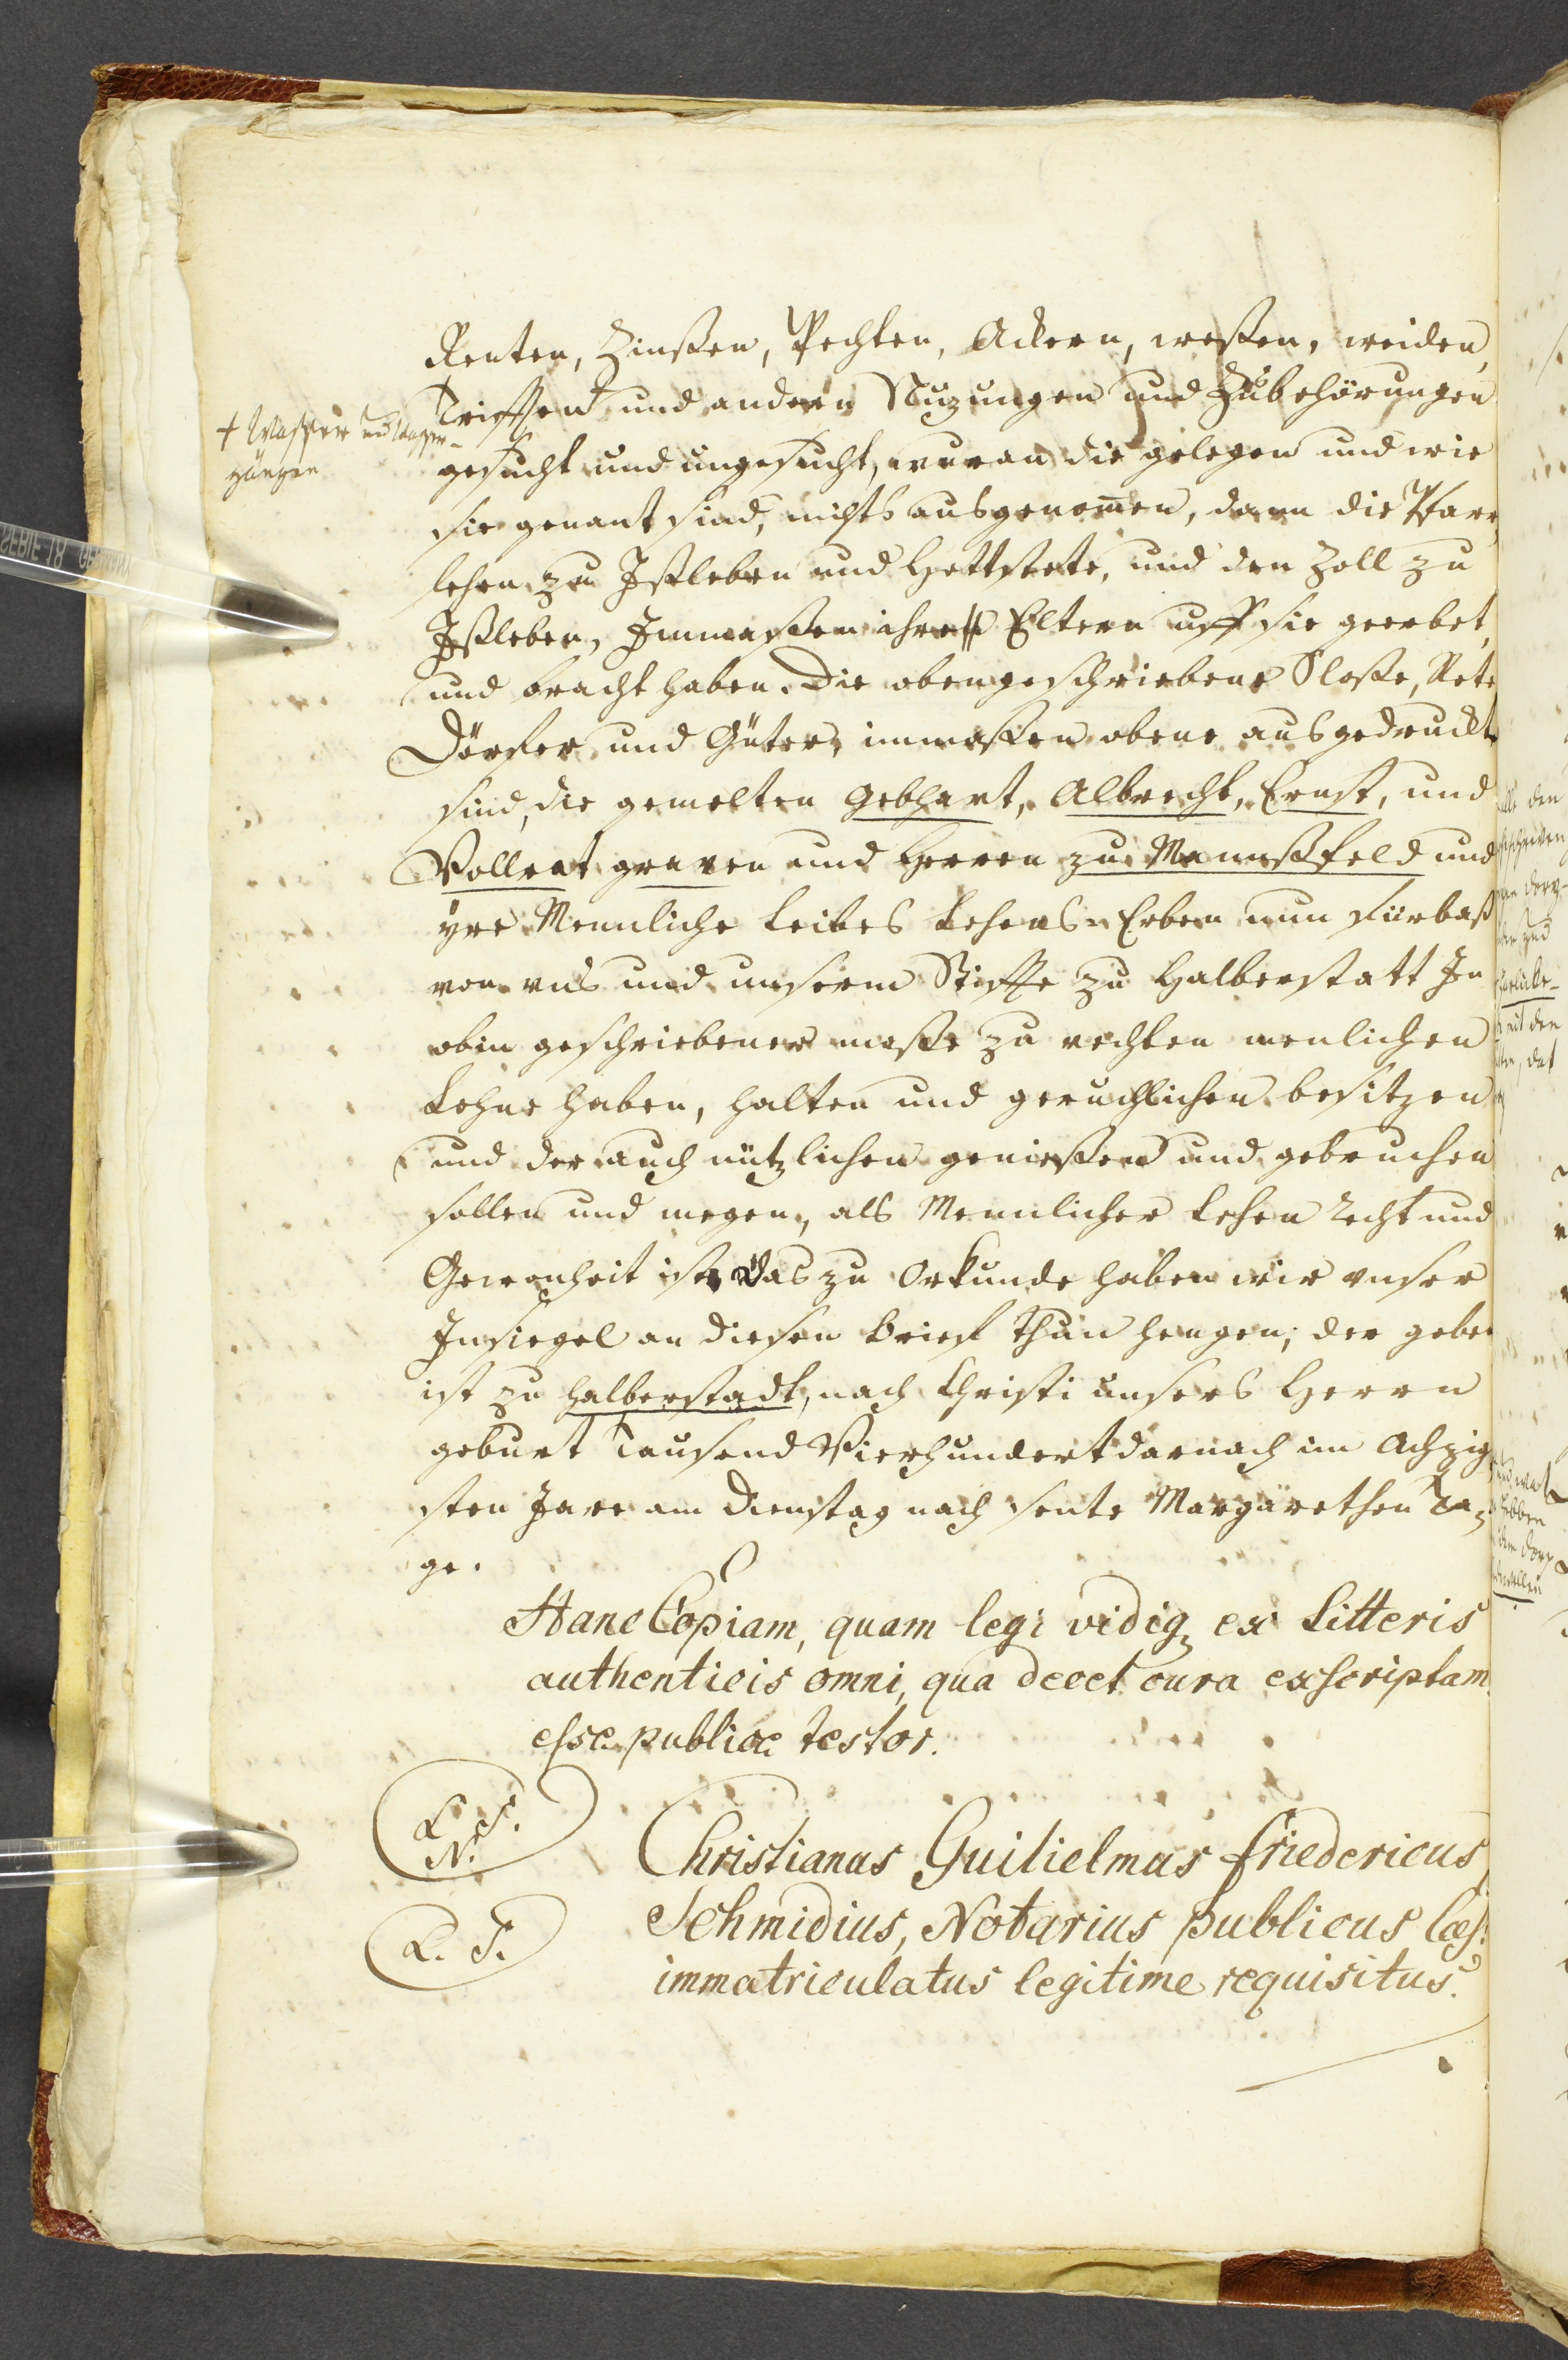 Renten, Zinßen, Pechten, Ackern, weßen, weiden,
Trifften und andern Nuzungen und Zubehörungen
+ Wasser und Wasser-
gängen
gesucht und ungesucht, wuran die gelegen und wie
sie genant sind, nichts ausgenom̅en, dann die Pfarr,
lehen zu Ißleben und Hettstete, und den Zoll zu
Ißleben, Inmaßen ihre Eltern uff sie geerbet,
und bracht haben. Die obengeschriebene Sloße, Stete
Dörfer und Güter, inmaßen obene ausgedruckt
sind, die gemelten Gebhart, Albrecht, Ernst, und
Vollrat graven und Herren zu Mannßfeld und
yre Mennliche Leibes Lehens-Erben nun fürbaß
von uns und unserm Stiffte zu Halberstatt In
obin geschriebener maße zu rechten menlichen
Lehne haben, halten und geruchlichen besitzen
und der auch nützlichen genießen und gebruchen
sollen und mogen, als Mennlicher Lehen Recht und
Gewonheit ist, Das zu Orkunde haben wir unser
Insiegel an diesen Brief thun hengen, der geben
ist zu Halberstadt, nach Christi unsers Herrn
geburt Tausend Vierhundert darnach im Achzig,
sten Jare am Dienstag nach sente Margarethen Ta,
ge.
Hanc Copiam, quam legi vidiq, ex Litteris
authenticis omni, qua decet cura exscriptam
esse publice testor.
L. S.
N.
Christianus Guilielmus Friedericus
Schmidius, Notarius publicus Cæs:
L. S.
immatriculatus legitime requisitus.